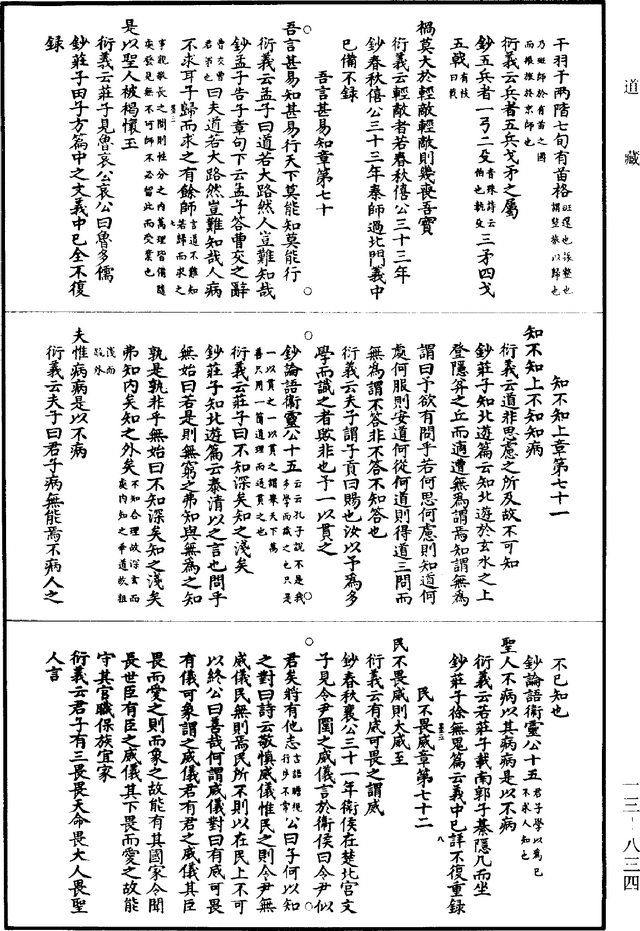 道藏
干羽于兩階七旬有苗格班還也振整也謂整旅以歸也
乃班師於有苗之國而雍雍於京師也
衍義云兵者五兵戈矛之屬
鈔五兵者一弓二殳音殊詩云伯也執殳三矛四戈
五戟有枝曰戟
禍莫大於輕敵輕敵則幾喪吾寶
衍義云輕敵者若春秋僖公三十三年
鈔春秋僖公三十三年秦師過北門義中
已備不錄
吾言甚易知章第七十
吾言甚易知甚易行天下莫能知莫能行
衍義云孟子曰道若大路然人豈難知哉
鈔孟子告子章句下云孟子答曹交之辭
曹交曹君弟也曰夫道若大路然豈難知哉人病
不求耳子歸而求之有餘師言道不難知若歸而求之
事親敬長之間則性分之內萬理皆備隨處發見無不可師不必留此而受業也
是以聖人被褐懷玉
衍義云莊子見魯哀公哀公曰魯多儒
鈔莊子田子方篇中之文義中已全不復
錄
知不知上章第七十一
知不知上不知知病
衍義云道非思慮之所及故不可知
鈔莊子知北遊篇云知北遊於玄水之上
登隱弅之丘而適遭無為謂焉知謂無為
謂曰予欲有問乎若何思何慮則知道何
處何服則安道何從何道則得道三問而
無為謂不答非不答不知答也
衍義云夫子謂子貢曰賜也汝以予為多
學而識之者歟非也予一以貫之
鈔論語衛靈公十五云云孔子說不是我多學而識之也只是
一以貫之一以貫之謂衆天下萬善只用一箇道理而通貫之也
衍義云莊子曰不知深矣知之淺矣
鈔莊子知北遊篇云泰清以之言也問乎
無始曰若是則無窮之弗知與無為之知
孰是孰非乎無始曰不知深矣知之淺矣
弗知內矣知之外矣不知合理故深玄而處內知之乖道故粗
淺而疏外
夫惟病病是以不病
衍義云夫子曰君子病無能焉不病人之
不已知也
鈔論語衛靈公十五君子學以為己不求人知也
聖人不病以其病病是以不病
衍義云若莊子載南郭子綦隱几而坐
鈔莊子徐無鬼篇云義中已詳不復重錄
民不畏威章第七十二
民不畏威則大威至
衍義云有威可畏之謂威
鈔春秋襄公三十一年衛侯在楚北宮文
子見令尹圍之威儀言於衛侯曰令尹似
君矣將有他志言語瞻視行步不常公曰子何以知
之對曰詩云敬慎威儀惟民之則令尹無
威儀民無則焉民所不則以在民上不可
以終公曰善哉何謂威儀對曰有威可畏
有儀可象謂之威儀君有君之威儀其臣
畏而愛之則而象之故能有其國家令聞
長世臣有臣之威儀其下畏而愛之故能
守其官職保族宜家
衍義云君子有三畏畏天命畏大人畏聖
人言
一三－八三四